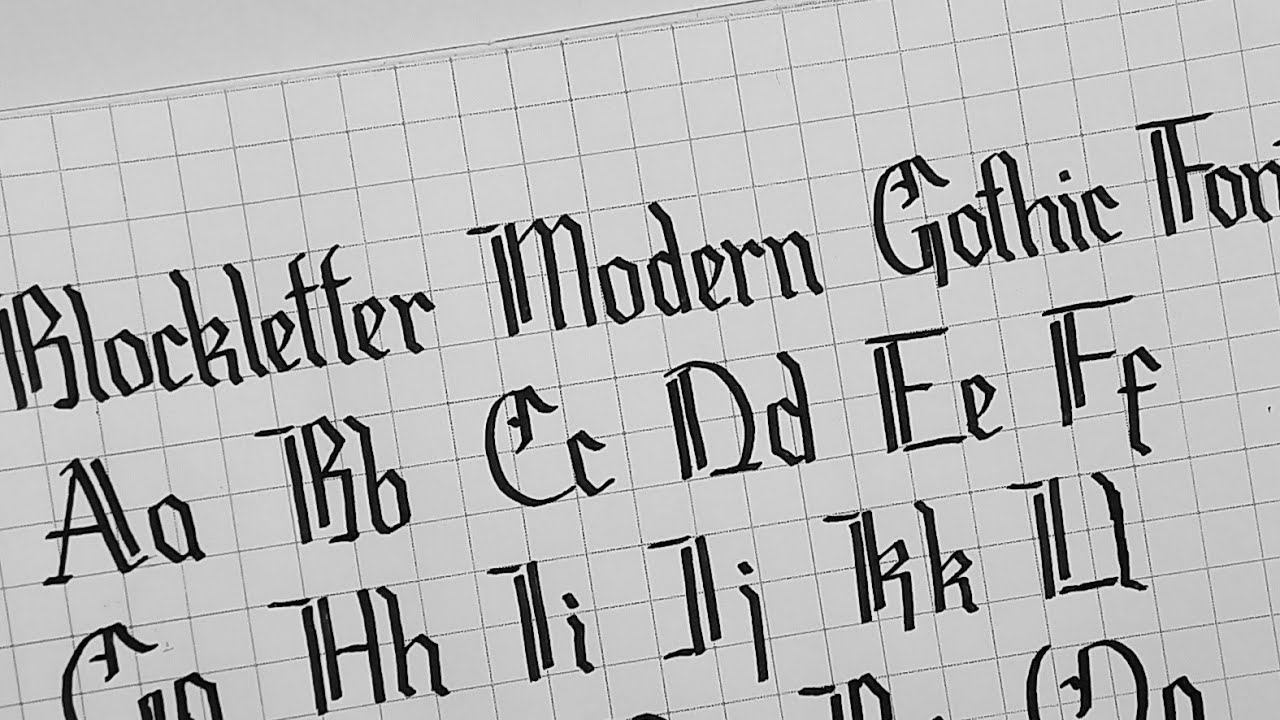 Blockletter Modern Gothic Fon
Aa Bb Cc Dd Ee Ff
Gg Hh Ii Jj Kk Ll